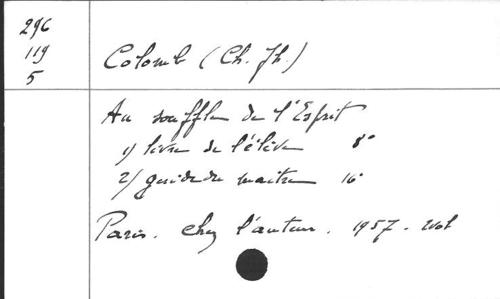 296
119
5
Colomb (Ch. Jh.)
Au souffle de l'Esprit
1) livre de l'élève 8°
2) guide du maître 16°
Paris. chez l'auteur. 1957. 2 vol